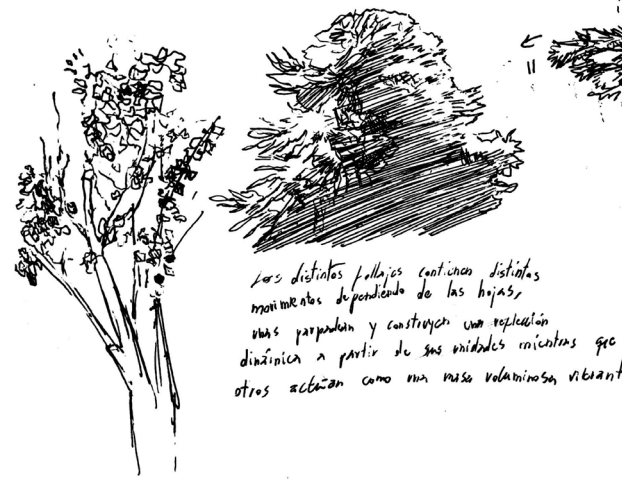 Los distintos follajes contienen distintos
movimientos dependiendo de las hojas,
unas parpadean y construyen una reflexión
dinámica a partir de sus unidades mientras que
otros actúan como una masa voluminosa vibrant